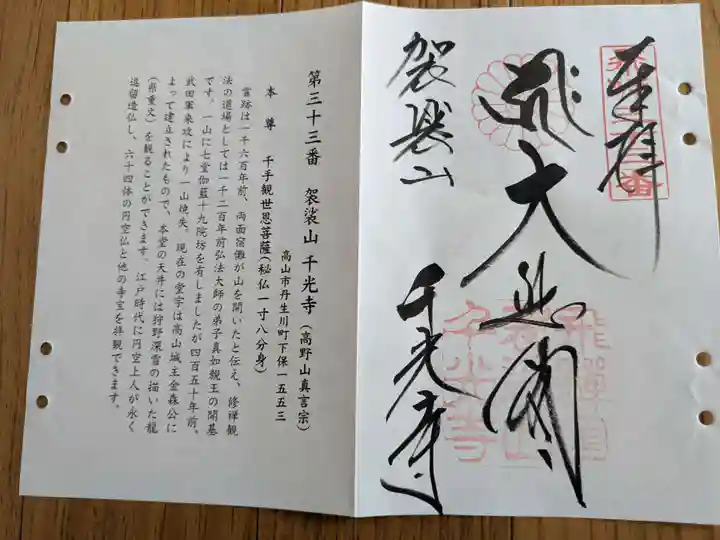 奉拝
大悲閣
袈裟山
千光寺
飛騨国
千光寺
第三十三番 袈裟山 千光寺(高野山真言宗)
高山市丹生川町下保一五五三
本尊 千手観世音菩薩(秘仏一寸八分身)
霊跡は一千六百年前、両面宿儺が山を開いたと伝え、修禅観
法の道場としては一千二百年前弘法大師の弟子真如親王の開基
です。一山に七堂伽藍十九院坊を有しましたが四百五十年前、
武田軍来攻により一山焼失。現在の堂宇は高山城主金森公に
よって建立されたもので、本堂の天井には狩野深雪の描いた龍
(県重文)を観ることができます。江戸時代に円空上人が永く
巡留造仏し、六十四体の円空仏と他の寺宝を拝観できます。